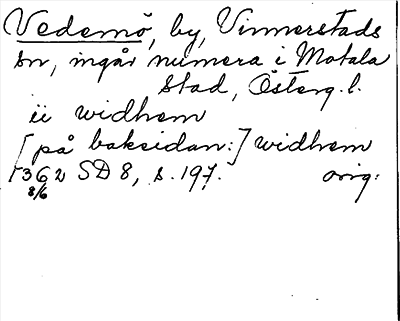 Vedemö, by, Vinnerstads
sn, ingår numera i Motala
stad, Österg. l.
ii widhem
[på baksidan:] widhem
1362 SD 8, s. 197. orig:
8/6